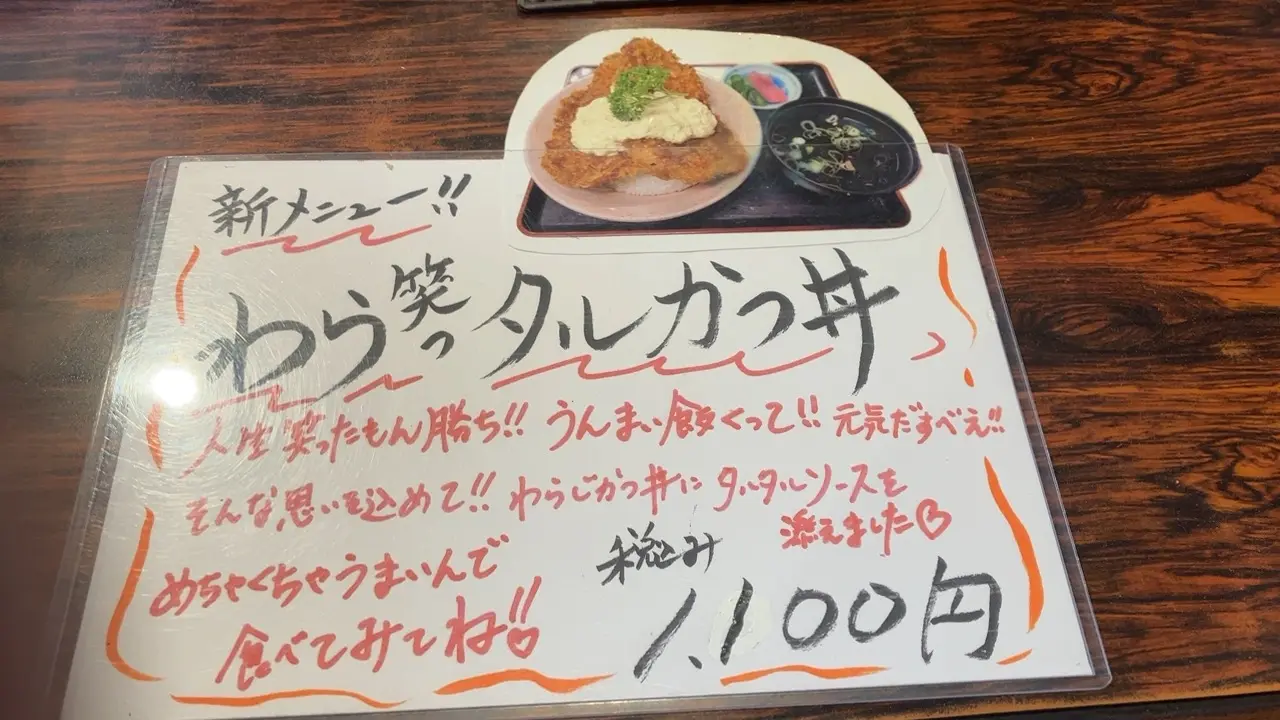 新メニュー!!
わら笑っタルかつ丼
人生笑ったもん勝ち!! うんまい飯くって!! 元気だすべえ!!
そんな思いを込めて!! わらじかつ丼にタルタルソースを
添えました♡
めちゃくちゃうまいんで
食べてみてね!!♡
税込み
1,100円